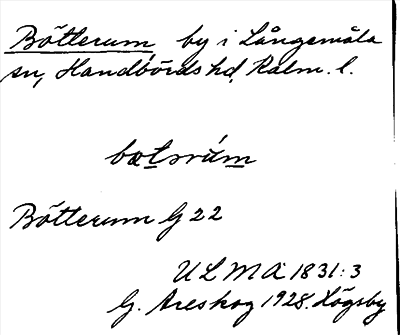 Bötterum, by i Långemåla
sn, Handbörds hd, Kalm. l.
bœtsrúm
Bötterum G 22
ULMA 1831:3
G. Areskog 1928. Högsby